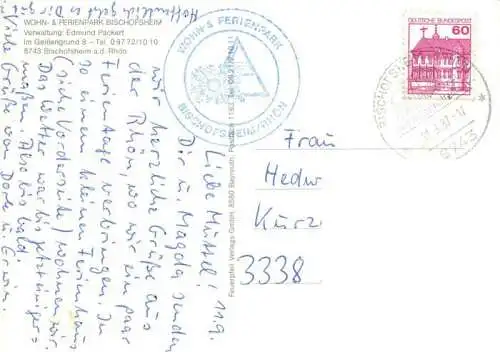 WOHN- & FERIENPARK BISCHOFSHEIM
Verwaltung: Edmund Packert
Im Geißengrund 8 – Tel. 0 97 72 / 10 10
8743 Bischofsheim a.d. Rhön
11.9.
Liebe Muttel!
Dir u. Magda senden
wir herzliche Grüße aus
der Rhön, wo wir ein paar
Ferientage verbringen. In
so einem kleinen Ferienhaus
(siehe Vorderseite) wohnen wir.
Das Wetter war bis jetzt einiger=
maßen. Also bis bald
Viele Grüße von Dorle u. Erwin.
Hoffentlich geht es Dir gut
Feuerpfeil Verlags GmbH, 8580 Bayreuth, Postfach
WOHN- & FERIENPARK
BISCHOFSHEIM/RHÖN
DEUTSCHE BUNDESPOST
60
BISCHOFSHEIM
8743
Frau
Hedw
Kurz
3338